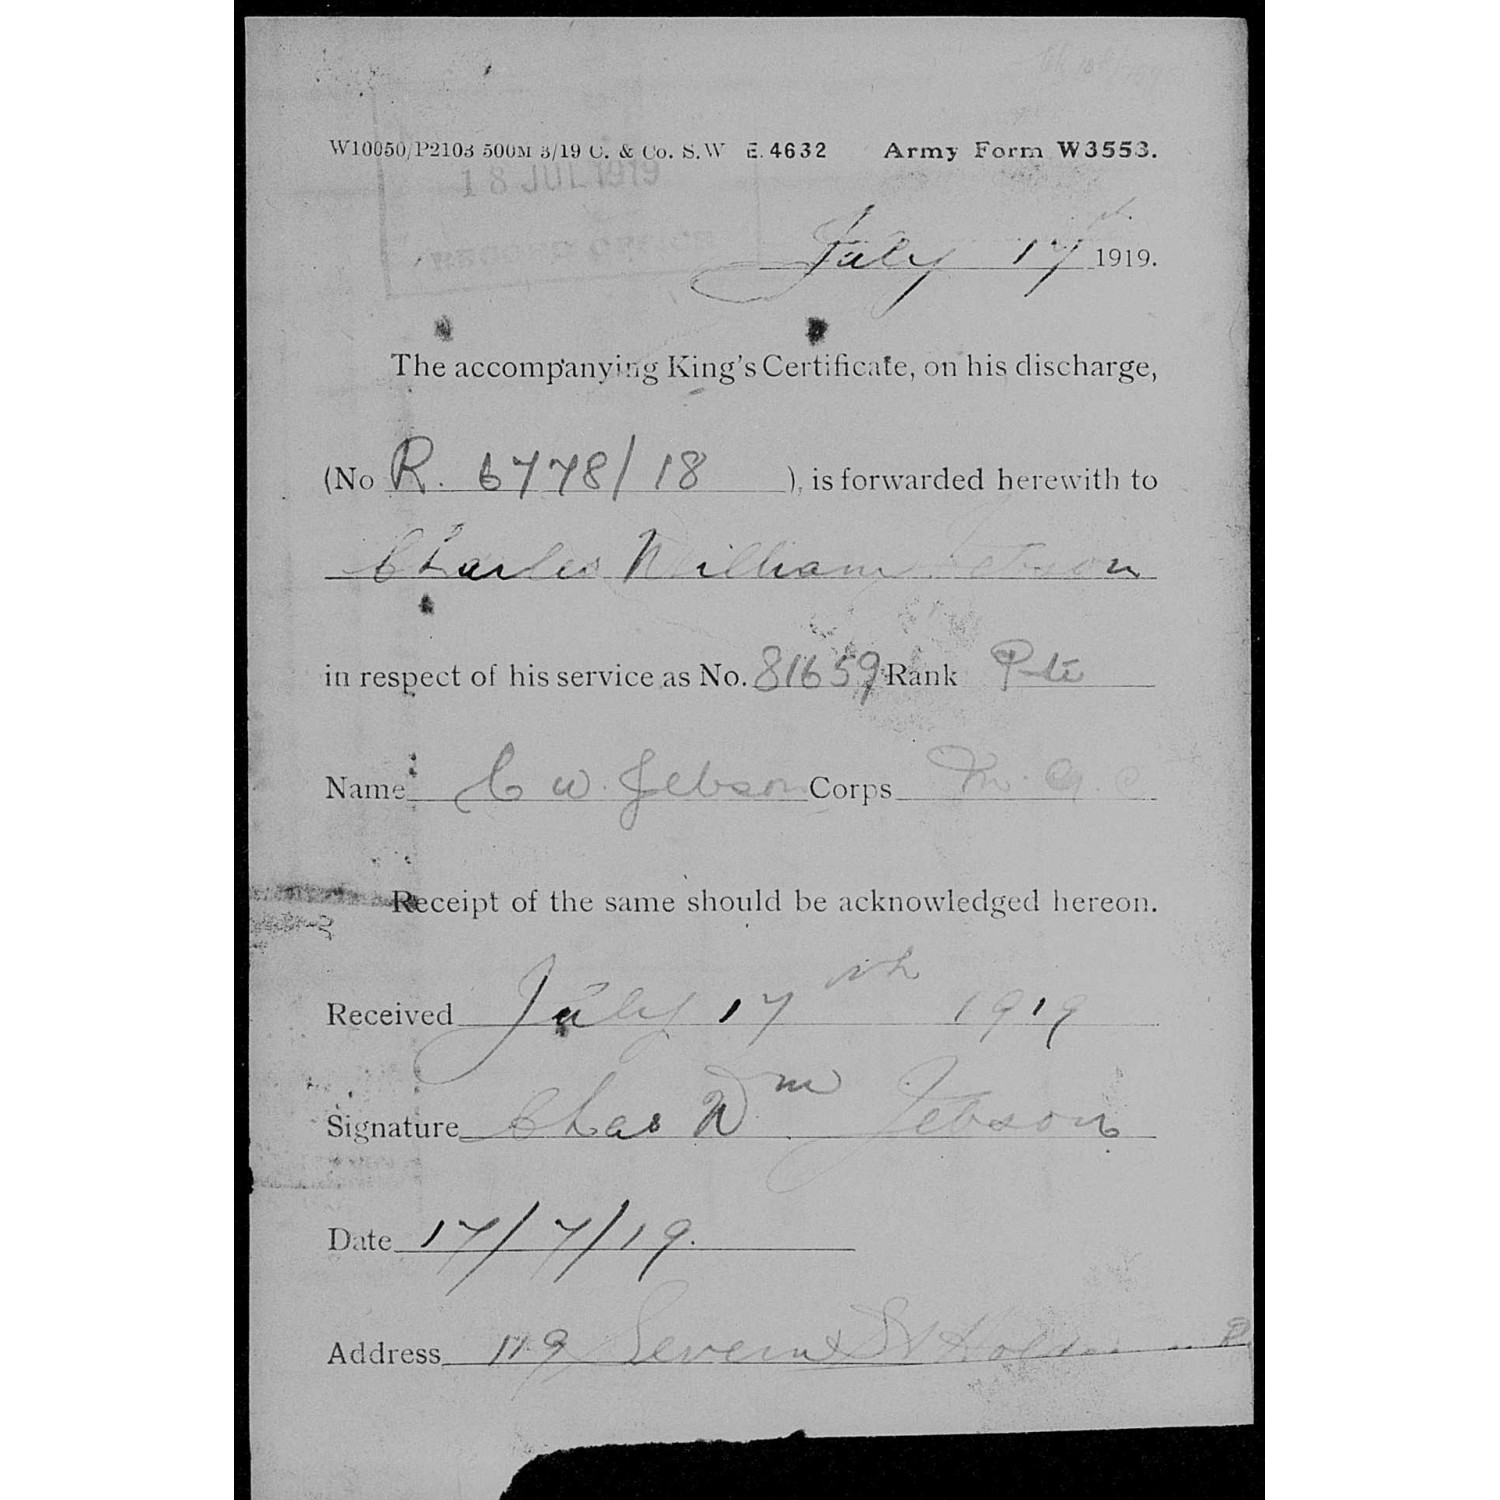 W10050/P2103 500M 3/19 C. & Co. S.W E. 4632 Army Form W3553.
18 JUL 1919
RECORD OFFICE
July 17th 1919.
The accompanying King's Certificate, on his discharge,
(No R. 6778/18 ), is forwarded herewith to
Charles William Jebson
in respect of his service as No. 81659 Rank Pte
Name C W. Jebson Corps M. G. C
Receipt of the same should be acknowledged hereon.
Received July 17th 1919
Signature Chas Wm Jebson
Date 17/7/19.
Address 119 Severn St